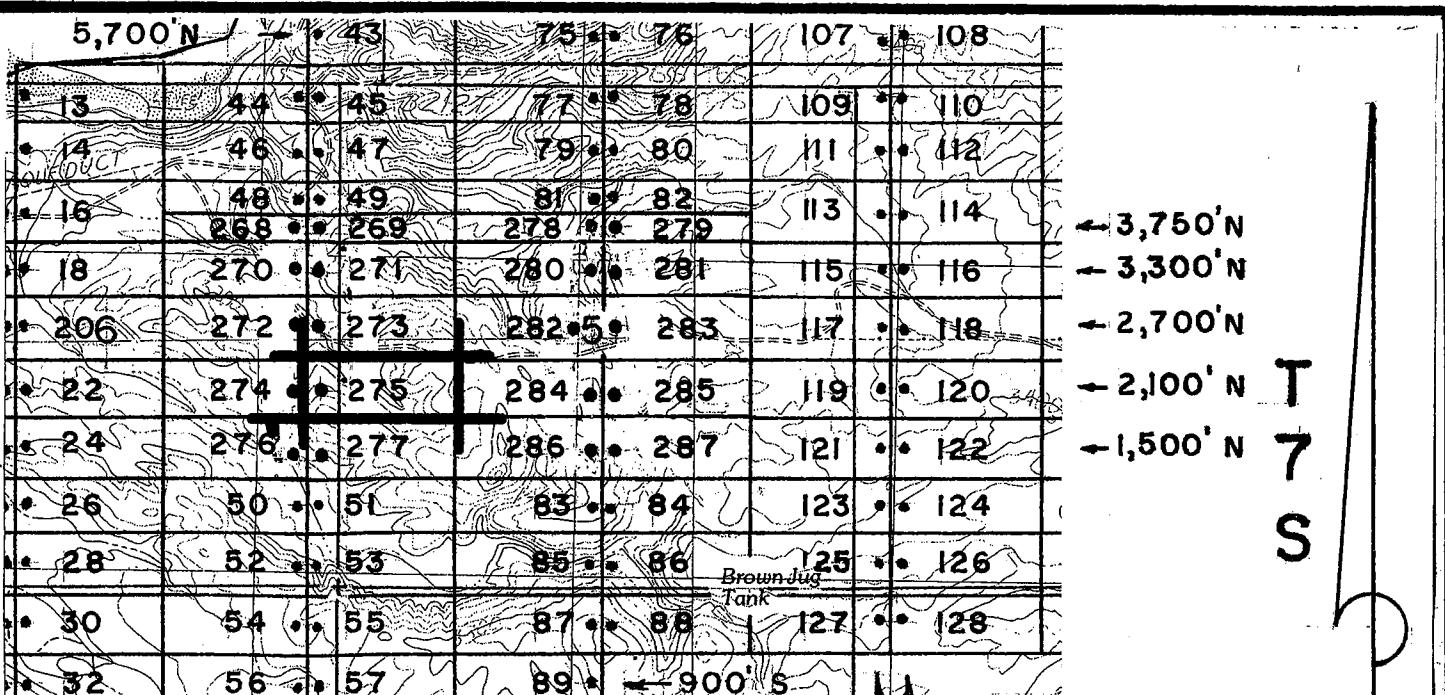 5,700'N 43 75 76 107 108
13 44 45 77 78 109 110
14 46 47 79 80 111 112
16 48 49 81 82 113 114
268 269 278 279 ← 3,750'N
18 270 271 280 281 115 116 ← 3,300'N
206 272 273 282 5 283 117 118 ← 2,700'N
22 274 275 284 285 119 120 ← 2,100' N T
24 276 277 286 287 121 122 ← 1,500' N 7
26 50 51 83 84 123 124 S
28 52 53 85 86 125 126
Brown Jug
Tank
30 54 55 87 88 127 128
32 56 57 89 ← 900' S